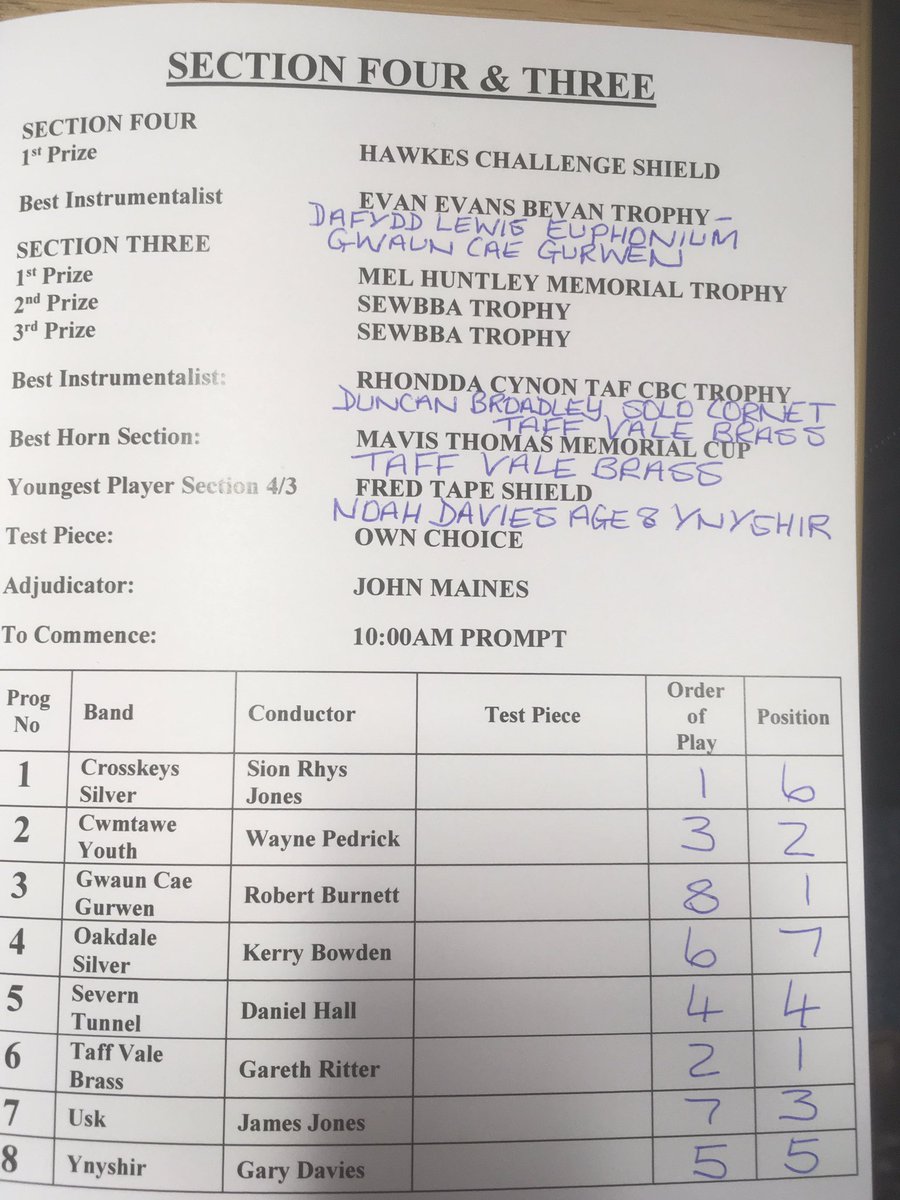 SECTION FOUR & THREE
SECTION FOUR
1st Prize HAWKES CHALLENGE SHIELD
Best Instrumentalist EVAN EVANS BEVAN TROPHY –
DAFYDD LEWIS EUPHONIUM
GWAUN CAE GURWEN
SECTION THREE
1st Prize MEL HUNTLEY MEMORIAL TROPHY
2nd Prize SEWBBA TROPHY
3rd Prize SEWBBA TROPHY
Best Instrumentalist: RHONDDA CYNON TAF CBC TROPHY
DUNCAN BROADLEY, SOLO CORNET
TAFF VALE BRASS
Best Horn Section: MAVIS THOMAS MEMORIAL CUP
TAFF VALE BRASS
Youngest Player Section 4/3 FRED TAPE SHIELD
NOAH DAVIES AGE 8 YNYSHIR
Test Piece: OWN CHOICE
Adjudicator: JOHN MAINES
To Commence: 10:00AM PROMPT
Prog No Band Conductor Test Piece Order of Play Position
1 Crosskeys Silver Sion Rhys Jones 1 6
2 Cwmtawe Youth Wayne Pedrick 3 2
3 Gwaun Cae Gurwen Robert Burnett 8 1
4 Oakdale Silver Kerry Bowden 6 7
5 Severn Tunnel Daniel Hall 4 4
6 Taff Vale Brass Gareth Ritter 2 1
7 Usk James Jones 7 3
8 Ynyshir Gary Davies 5 5